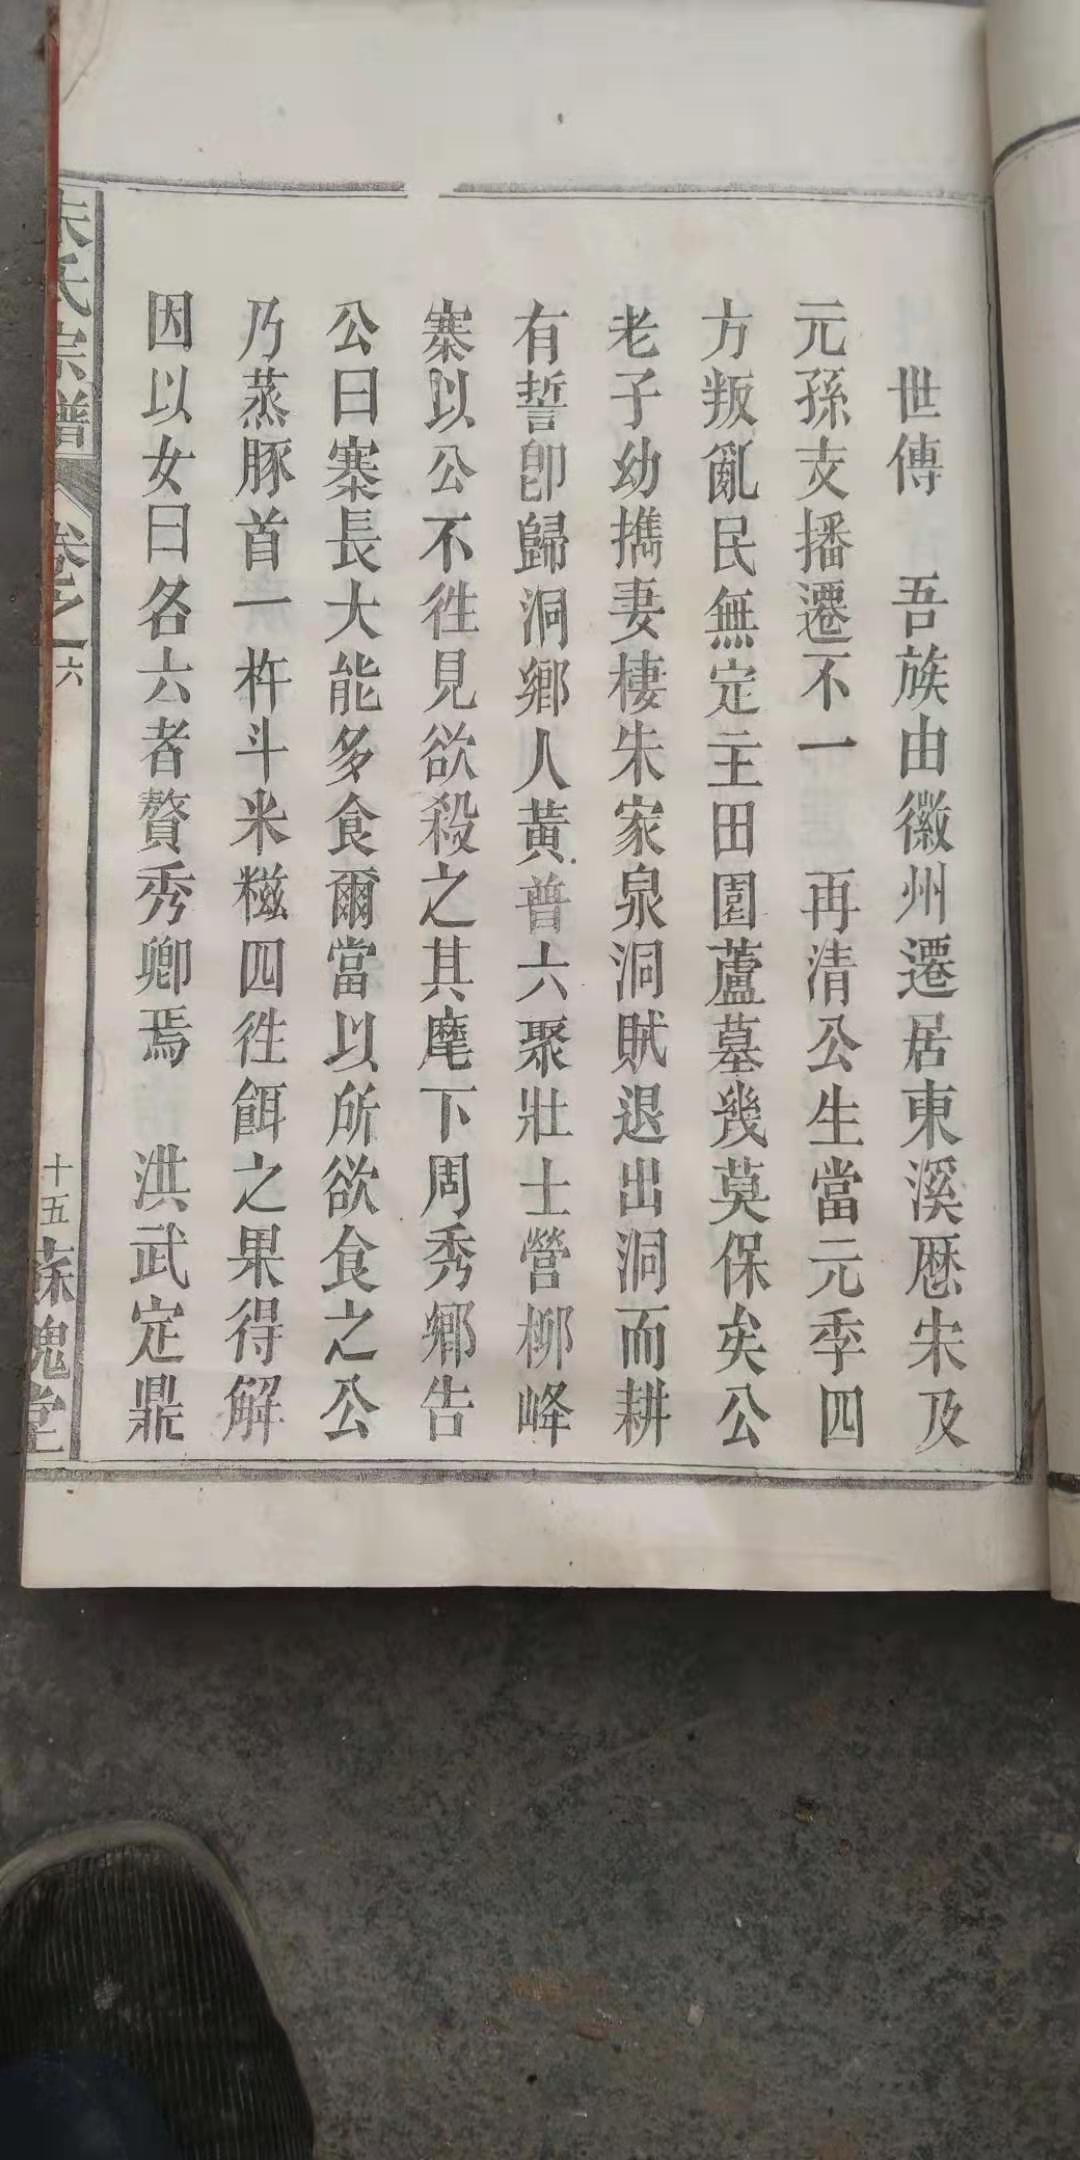 世傳　吾族由徽州遷居東溪厯宋及
元孫支播遷不一　再清公生當元季四
方叛亂民無定主田園蘆墓幾莫保矣公
老子幼攜妻棲朱家泉洞賊退出洞而耕
有誓卽歸洞鄉人黃普六聚壯士營柳峰
寨以公不徃見欲殺之其麾下周秀鄉告
公曰寨長大能多食爾當以所欲食之公
乃蒸豚首一杵斗米糍四徃餌之果得解
因以女曰各六者贅秀卿焉　洪武定鼎
朱氏宗譜　卷之六　十五